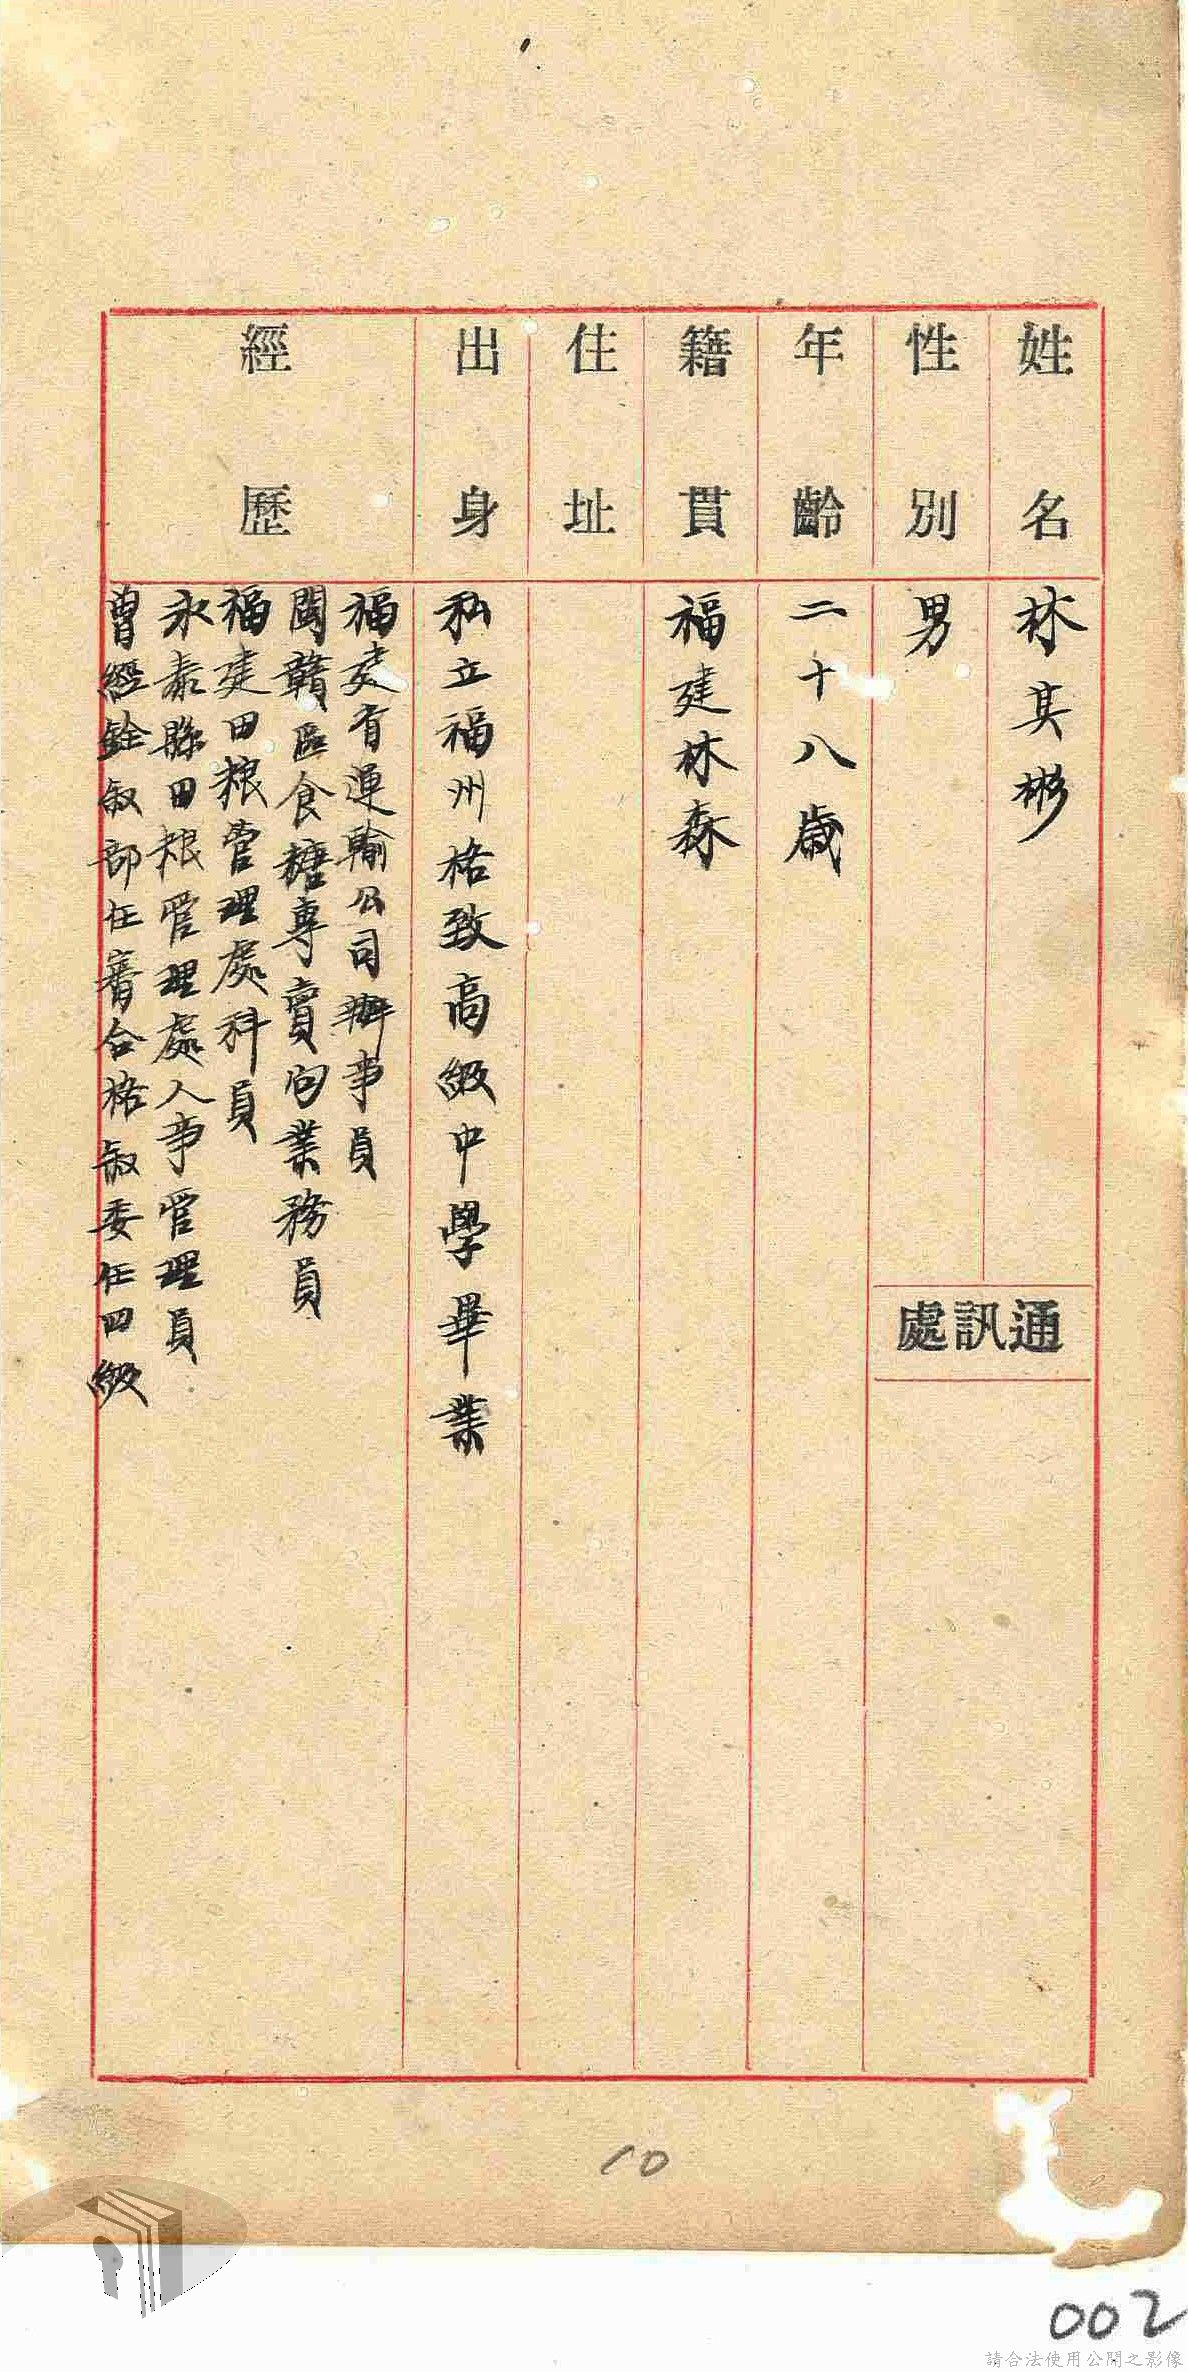 姓名
林其彬
性別
男
通訊處
年齡
二十八歲
籍貫
福建林森
住址
出身
私立福州格致高級中學畢業
經歷
福建省運輸公司辦事員
閩贛區食糖專賣局業務員
福建田粮管理處科員
永泰縣田粮管理處人事管理員
曾經銓敘部任審合格敘委任四級
10
002
請合法使用公開之影像